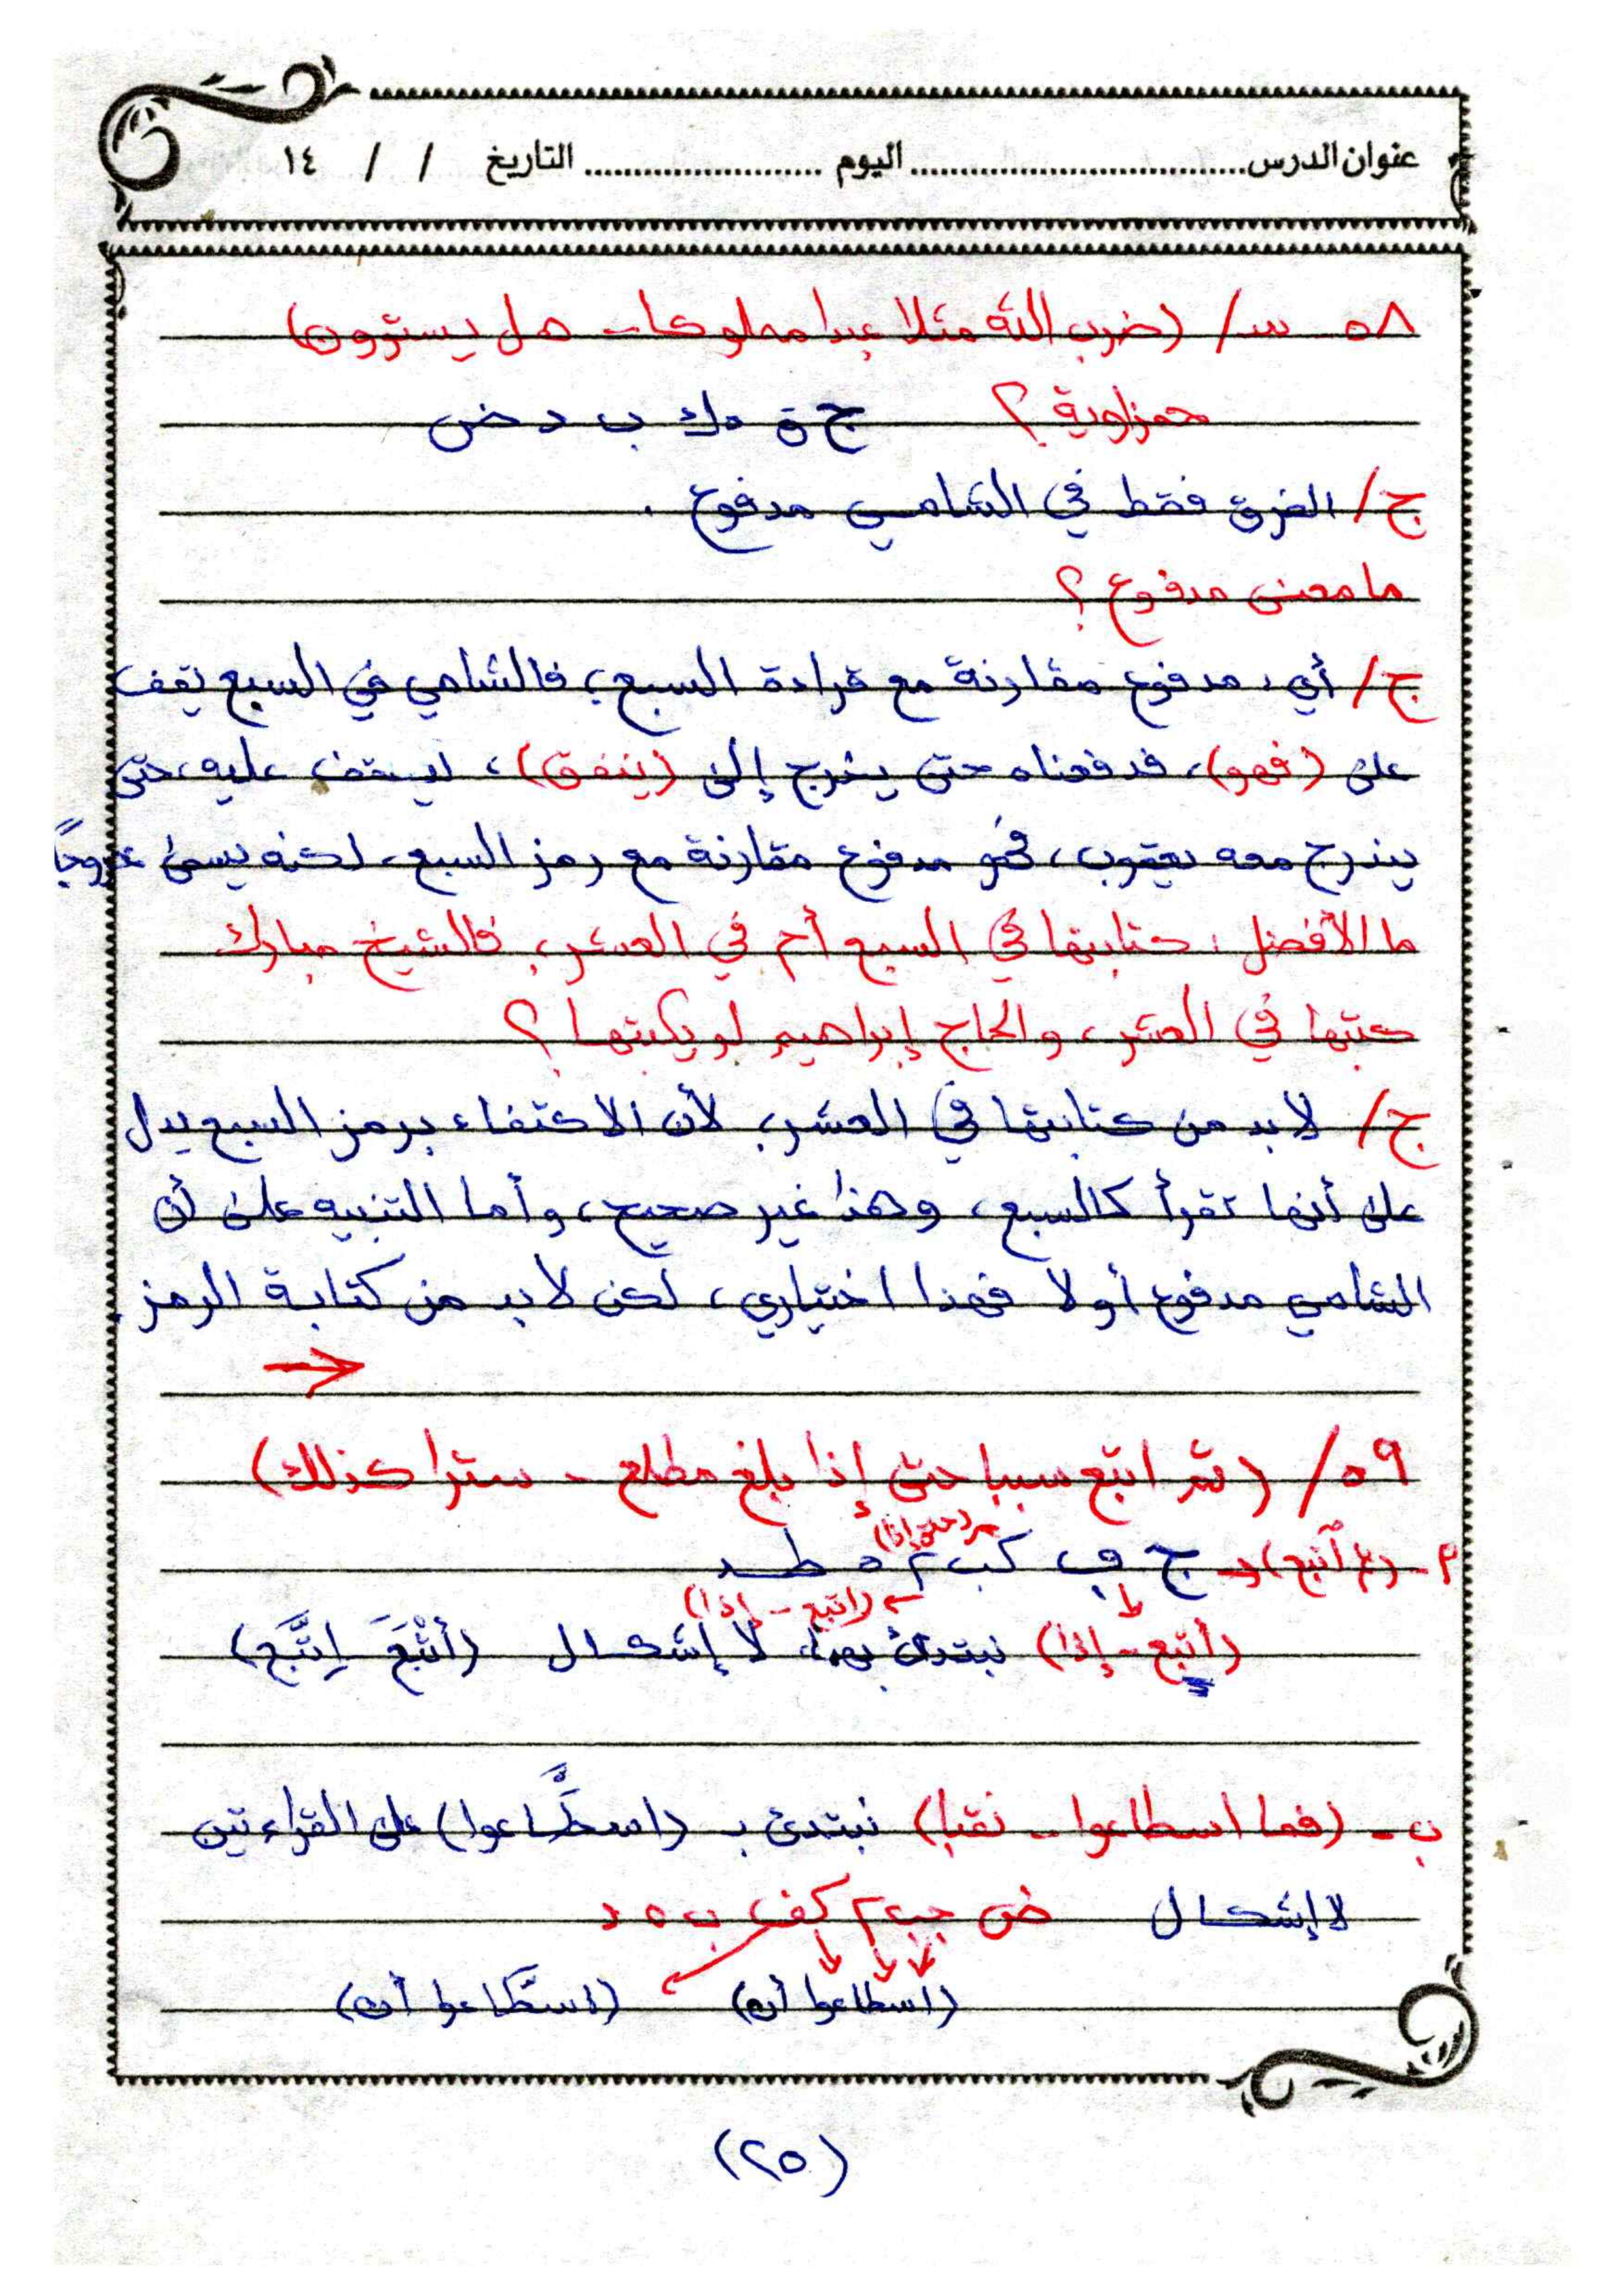 عنوان الدرس ............ اليوم ............ التاريخ / / ١٤
٥٨ س/ (ضرب الله مثلا عبدا مملوكا - هل يستوون)
حمزاوية ؟ ج ق ه ك ب د ض
ج/ الفرق فقط في الشامي مدفوع .
ما معنى مدفوع ؟
ج/ أي: مدفوع مقارنة مع قراءة السبع، فالشامي في السبع يقف
على (فهو)، فدفعناه حتى يخرج إلى (ينفق)، ليقف عليه، حتى
يندرج معه يعقوب، فهو مدفوع مقارنة مع رمز السبع، لكنه يسمى خروجاً
ما الأفضل، كتابتها في السبع أم في العشر، فالشيخ مبارك
كتبها في العشر، والحاج إبراهيم لم يكتبها ؟
ج/ لابد من كتابتها في العشر، لأن الاكتفاء برمز السبع يدل
على أنها تقرأ كالسبع، وهذا غير صحيح، وأما التنبيه على أن
الشامي مدفوع أولا فهذا اختياري، لكن لابد من كتابة الرمز .
٥٩ / (ثم اتبع سببا حتى إذا بلغ مطلع - سترا كذلك)
(حتى إذا)
م - (ثم أتبع) ج ف كب ٢ ه ط د
(اتبع - إذا)
(أتبع - إذا) نبتدئ بهما، لا إشكال (أَتْبَعَ - اِتَّبَع)
ب - (فما اسطاعوا - نقبا) نبتدئ بـ (اسطَّاعوا) على القراءتين
لا إشكال ض جب ٢ كف ب ه د
(اسطاعوا أن) (اسطَّاعوا أن)
(٢٥)